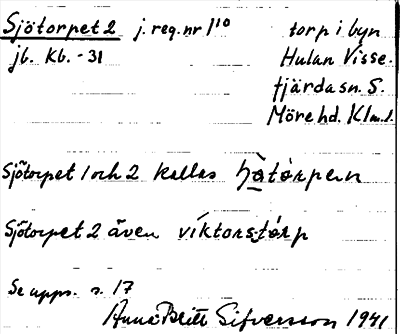 Sjötorpet 2 j. reg. nr 1¹⁰ torp i byn
jb. Kb. -31 Hulan Visse-
fjärda sn. S.
Möre hd. Klm. l.
Sjötorpet 1 och 2 kallas
Sjötorpet 2 även víktorstórp
Se upps. s. 17
Anna-Britt Sifversson 1941